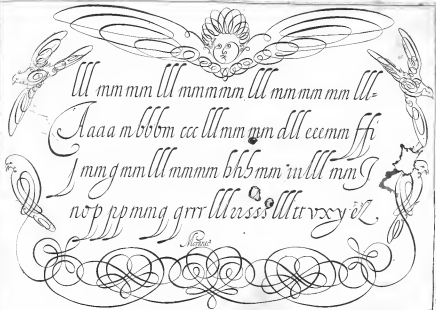 lll mmmm lll mmmmm lll mmmmmm lll=
Aaaa m bbbm ccc lll mm mm dll eeemm ffi
J mmgmmlll mmmm bhbmm iulll mm J
nopppmmg grrr lll usss lll tt vxyez